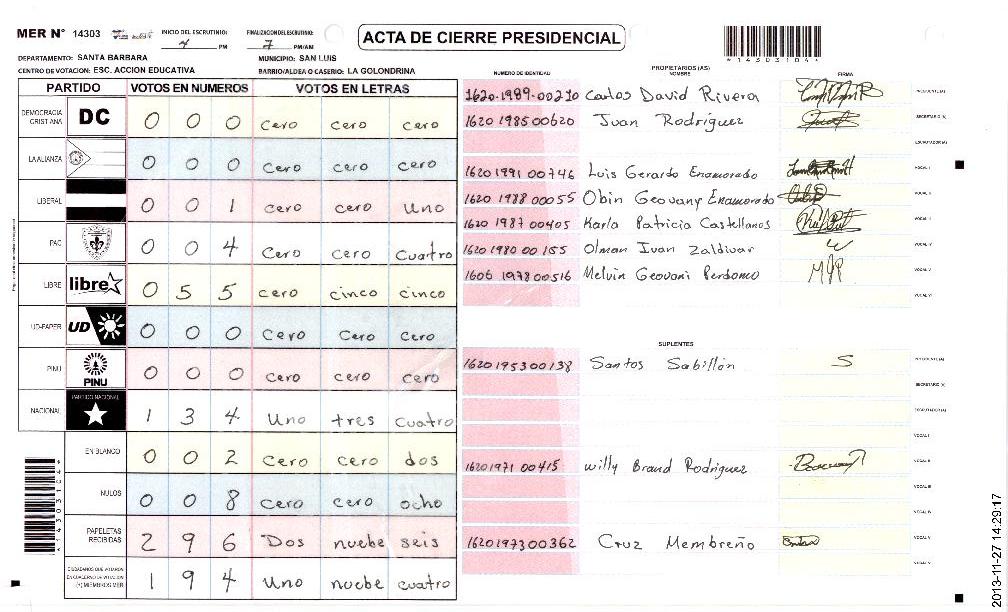 MER N° 14303 INICIO DEL ESCRUTINIO: 4 PM FINALIZACION DEL ESCRUTINIO: 7 PM/AM
ACTA DE CIERRE PRESIDENCIAL
*14303104*
DEPARTAMENTO: SANTA BARBARA MUNICIPIO: SAN LUIS
CENTRO DE VOTACION: ESC. ACCION EDUCATIVA BARRIO/ALDEA O CASERIO: LA GOLONDRINA
PARTIDO VOTOS EN NUMEROS VOTOS EN LETRAS
DEMOCRACIA CRISTIANA DC 0 0 0 cero cero cero
LA ALIANZA 0 0 0 cero cero cero
LIBERAL 0 0 1 cero cero uno
PAC 0 0 4 cero cero cuatro
LIBRE libre 0 5 5 cero cinco cinco
UD-FAPER UD 0 0 0 cero cero cero
PINU PINU 0 0 0 cero cero cero
NACIONAL PARTIDO NACIONAL 1 3 4 Uno tres cuatro
EN BLANCO 0 0 2 cero cero dos
NULOS 0 0 8 cero cero ocho
PAPELETAS RECIBIDAS 2 9 6 Dos nuebe seis
CIUDADANOS QUE VOTARON EN CUADERNO DE VOTACION (+) MIEMBROS MER 1 9 4 Uno nuebe cuatro
*14303104*
NUMERO DE IDENTIDAD PROPIETARIOS (AS) NOMBRE FIRMA
1620-1989-00210 Carlos David Rivera PRESIDENTE(A)
1620 1985 00620 Juan Rodriguez SECRETARIO (A)
ESCRUTADOR (A)
1620 1991 00746 Luis Gerardo Enamorado VOCAL I
1620 1988 00055 Obin Geovany Enamorado VOCAL II
1620 1987 00405 Karla Patricia Castellanos
1620 1980 00 155 Olman Ivan Zaldivar VOCAL IV
1606 1978 00516 Melvin Geovani Perdomo VOCAL V
VOCAL VI
SUPLENTES
1620 1953 00138 Santos Sabillón S PRESIDENTE(A)
SECRETARIO (A)
ESCRUTADOR (A)
VOCAL I
1620 1971 00415 Willy Brand Rodriguez VOCAL II
VOCAL III
VOCAL IV
1620 1973 00362 Cruz Membreño VOCAL V
2013-11-27 14:29:17